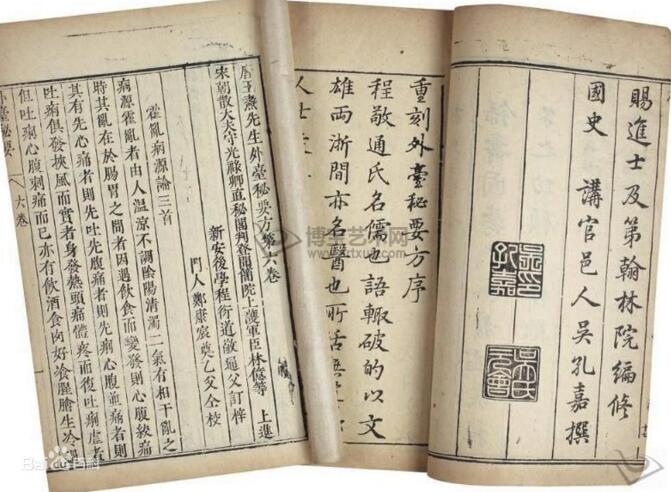 賜進士及第翰林院編修
國史 講官邑人吳孔嘉撰
重刻外臺秘要方序
程敬通氏名儒也語輙破的以文
雄両浙間亦名醫也所活
人
唐王燾先生外臺秘要方第六卷
宋朝散大夫守光祿卿直秘閣判登聞簡院上護軍臣林億等 上進
新安後學程衍道敬通父訂梓
門人鄭康宸奠乙父仝校
霍亂病源論三首
病源霍亂者由人溫涼不調陰陽清濁二氣有相干亂之
時其亂在於腸胃之間者因遇飲食而變發則心腹絞痛
其有先心痛者則先吐先腹痛者則先痢心腹並痛者則
吐痢俱發挾風而實者身發熱頭痛體疼而復吐痢虛者
但吐痢心腹刺痛而已亦有飲酒食肉好飡腥膾生冷過
外臺秘要 六卷
博宝艺术网
Bai百科